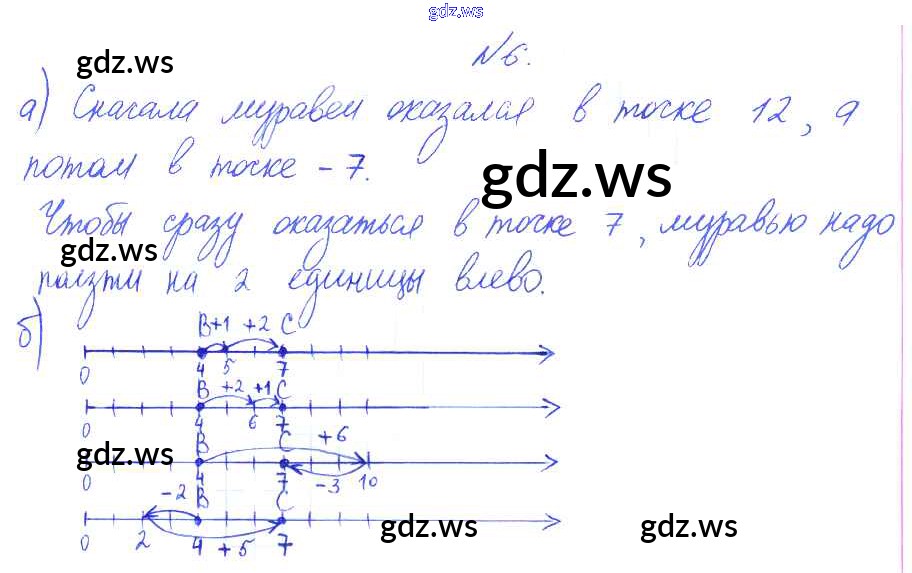 gdz.ws
gdz.ws
№6.
а) Сначала муравей оказался в точке 12, а
потом в точке -7.
gdz.ws
Чтобы сразу оказаться в точке 7, муравью надо
gdz.ws
ползти на 2 единицы влево.
б)
B +1 +2 C
0 4 5 7
B +2 +1 C
0 4 6 7
B C +6
gdz.ws
0 4 7 -3 10
-2 B C
gdz.ws gdz.ws
0 2 4 +5 7